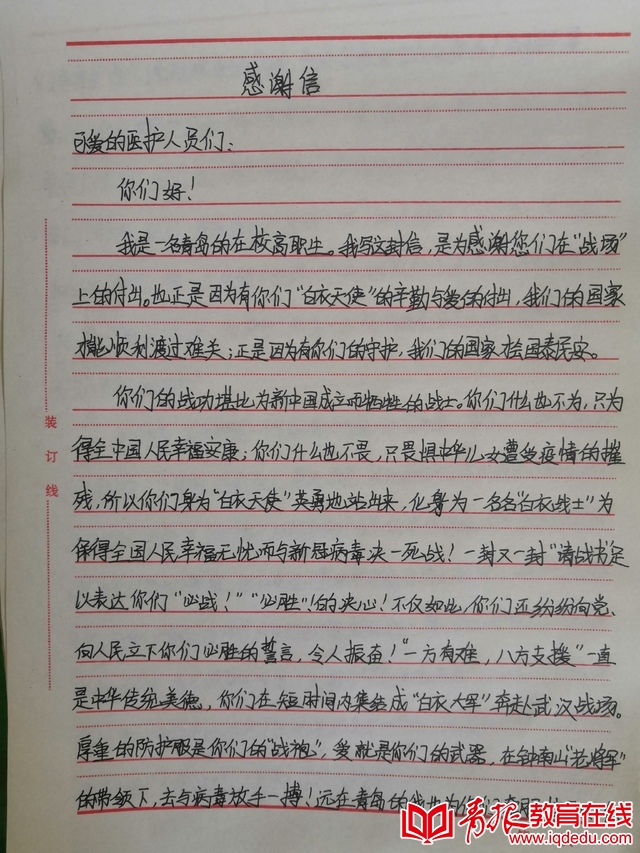 感谢信
可爱的医护人员们：
你们好！
我是一名青岛的在校高职生。我写这封信，是为感谢您们在“战场”
上的付出。也正是因为有你们“白衣天使”的辛勤与爱的付出，我们的国家
才能顺利渡过难关；正是因为有你们的守护，我们的国家才会国泰民安。
你们的战功堪比为新中国成立而牺牲的战士。你们什么也不为，只为
得全中国人民幸福安康；你们什么也不畏，只畏惧中华儿女遭受疫情的摧
残，所以你们身为“白衣天使”英勇地站出来，化身为一名名“白衣战士”为
保得全国人民幸福无忧而与新冠病毒决一死战！一封又一封“请战书”足
以表达你们“必战！”“必胜”！的决心！不仅如此，你们还纷纷向党、
向人民立下你们必胜的誓言，令人振奋！“一方有难，八方支援”一直
是中华传统美德，你们在短时间内集结成“白衣大军”奔赴武汉战场。
厚重的防护服是你们的“战袍”，爱就是你们的武器，在钟南山“老将军”
的带领下，去与病毒放手一搏！远在青岛的我也为你们
装订线
青报教育在线
www.iqdedu.com